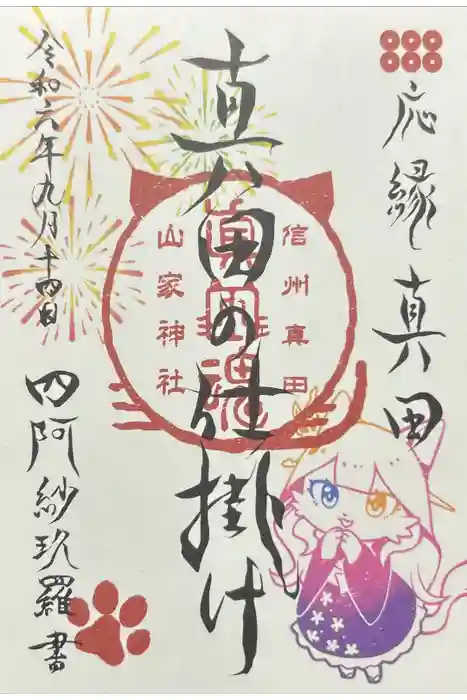 応縁真田
真田の仕掛け
信州真田
山家神社
令和六年九月十四日
四阿紗玖羅書